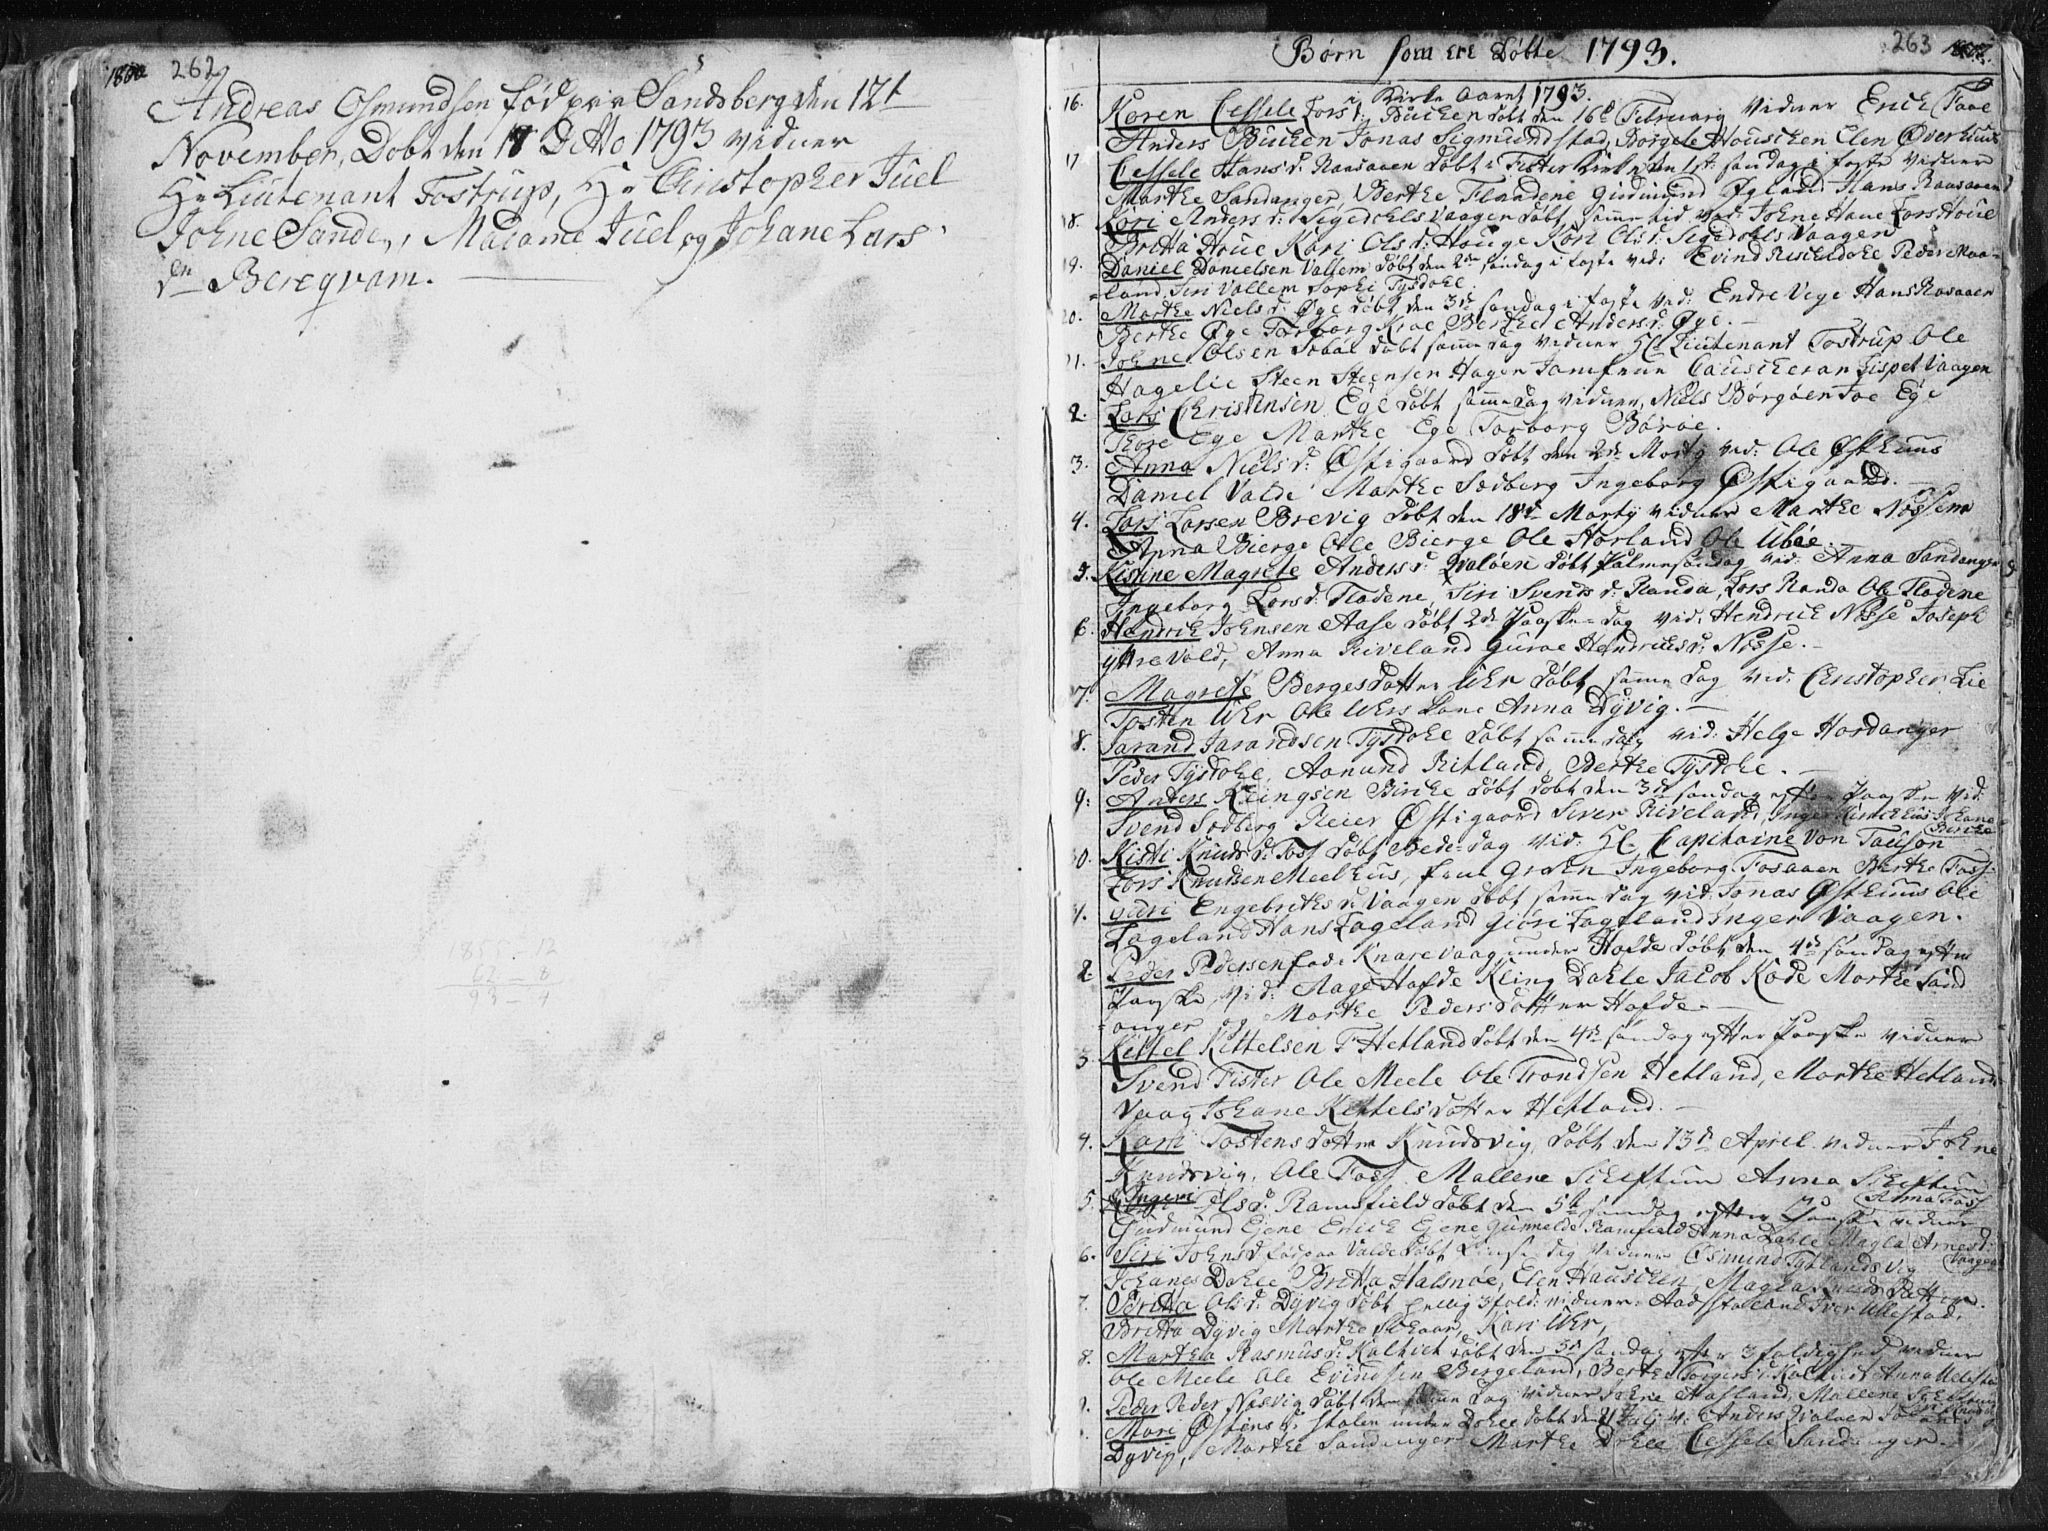 1800 262
Andreas Osmundsen fød paa Sandsberg den 12t
November, Døbt den 17 Dito 1793 vidner
Hr Liutenant Tostrup, Hr Christopher Juel
Johne Sande, Madame Juel og Johane Lars
dn Bereqvam.
1855 - 12
62 - 8
93 - 4
Børn som ere Døbte 1793. 263
i Kirke Aaret 1793.
16. Karen Cessele Lars d: Bucken døbt den 16d February vidner Erick Taae
Anders Bucken Jonas Sigmundstad, Borgele Houscken Elen Øverhuus
17. Cessele Hans d: Raasaaen døbt i Fister Kirke den 1st søndag i faste vidner
Marthe Sandanger, Berthe Fladene Gudmund Øgland Hans Raasaaen
18. Kari Anders d: Segedahls Vaagen døbt samme tid vid: Johne Houe Lars Houe
Britta Houe Kari Ols d: Houge Kari Ols d: Segedahls Vaagen
19. Daniel Danielsen Vallem døbt den 2den søndag i faste vid: Evind Rischedahl Peder Maa-
=land, Siri Vallem Sophi Tysdahl.
20. Marthe Niels d: Øye døbt den 3de søndag i faste vid: Endre Vige Hans Rosaaen
Berthe Øye Torborg Kroe Berthe Anders d: Øye. -
21. Johnes Olsen Søbøe døbt samme dag vidner Hr Liutenant Tostrup Ole
Hagelie Steen Steensen Hagen Jomfrue Lispet Vaagen
2. Lars Christensen Ege døbt samme dag vidner, Niels Børgøen Toe Ege
Thore Ege Marthe Ege Torborg Børøe.
3. Anna Niels d: Østigaard døbt den 2de Marty vid: Ole Østhuus
Daniel Valde Marthe Sædberg Ingeborg Østigaard. -
4. Lars Larsen Brevig døbt den 18de Marty vidner Marthe Nøssem
Anna Bierge Ole Bierge Ole Horland Ole Ubøe.
5. Kistine Magrete Anders d: Qvaløen døbt Palmesøndag vid: Anna Sandanger
Ingeborg Lars d: Fladene, Siri Svends d: Randa, Lars Randa Ole Fladene
6. Hendrik Johnsen Aase døbt 2de Paaske-dag vid: Hendrick Nøsse Joseph
ytre Vold, Anna Riveland Guroe Hendricks d: Nøsse. -
7. Magrete Berges datter Uhr døbt samme dag vid: Christopher Lie
Tosten Uhr Ole Uhrs kone Anna Dyvig. -
8. Jarand Jarandsen Tysdahl døbt samme dag vid: Helge Hardanger
Peder Tysdahl, Aanund Ritland, Berthe Tysdahl. -
9: Anders Klingsen Bircke døbt den 3de søndag efter Paaske vid:
Svend Sødberg Reier Østigaard Siver Riveland, Johane
Bircke
0. Kisti Knuds d: Foss døbt Bede-dag vid: Hr. Capitaine Von Tauson
Lars Knudsen Meelhus, frue Ingeborg Fosaaen Berthe Foss-
1. Guri Engebrets d: Vaagen døbt samme dag vid: Jonas Østhuus Ole
Lageland Hans Lageland Giøri Lageland Inger Vaagen.
2. Peder Pedersen fød i Knarevaag under Hafde døbt den 4de søndag efter
Paaske, vid: Aage Hafde Kling Dahle Jacob Kode Marthe Sand
=anger og Marthe Peders datter Hafde. -
3. Kittel Kittelsen T Hetland døbt den 4de søndag efter Paaske vidner
Svend Fister Ole Meele Ole Trondsen Hetland, Marthe Hetlands
Vaag Johane Kittels datter Hetland. -
4. Kari Tostens datter Knudsvig, døbt den 13de April vidner Johne
Knudsvig, Ole Foss, Mallene Skiftun Anna Skiftun
Anna Foss
5. Ingeri Els d: Ramsfield døbt den 5te søndag efter Paaske vidner
Gudmund Eiene Erick Eiene Gunnelde Ramsfield Anna Dahle Magla Arnes d:
Vaagen
6. Siri Johns d: fød paa Valde døbt Pinse dag vidner Osmund Tytlandsvig
Johanes Dahle Britta Halsnøe, Elen Hauscken, Magla datter.
7. Britta Ols d: Dyvig døbt hellig 3 fold: vidner: Iver Ullestad,
Britta Dyvig Marthe Kari Uhr,
8. Martha Rasmus d: Kalhiet døbt den 5te søndag efter 3 foldighed vidner
Ole Meele Ole Evindsen Bergeland, Berthe Torgers d: Kalhiet Anna
9. Peder Peder Nøsvig døbt den samme dag vidner Johne Hafland, Mallene Skiftun
. Mari Østens d: stolen under Dahle døbt den 21 July v: Anders Qvaløen
Dyvig, Marthe Sandanger Marthe Dahle Cessele Sandanger.